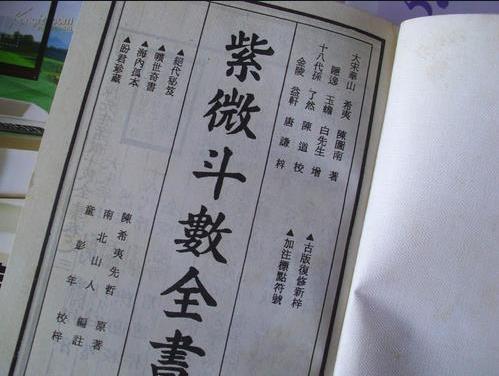 大宋華山 希夷 陳圖南 著
隱逸 玉蟾 白先生 增
十八代孫 了然 陳道 校
金陵 益軒 唐謙 梓
▲古版復修新梓
▲加注標點符號
紫微斗數全書
▲絕代秘笈
▲曠世奇書
▲海內孤本
▲盼君珍藏
陳希夷先哲 原著
南北山人 編註
彭年 校梓